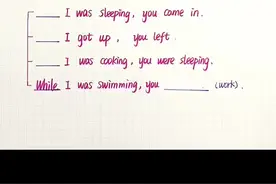 ____ I was sleeping, you came in.
____ I got up, you left.
____ I was cooking, you were sleeping.
While I was swimming, you ________ (work).